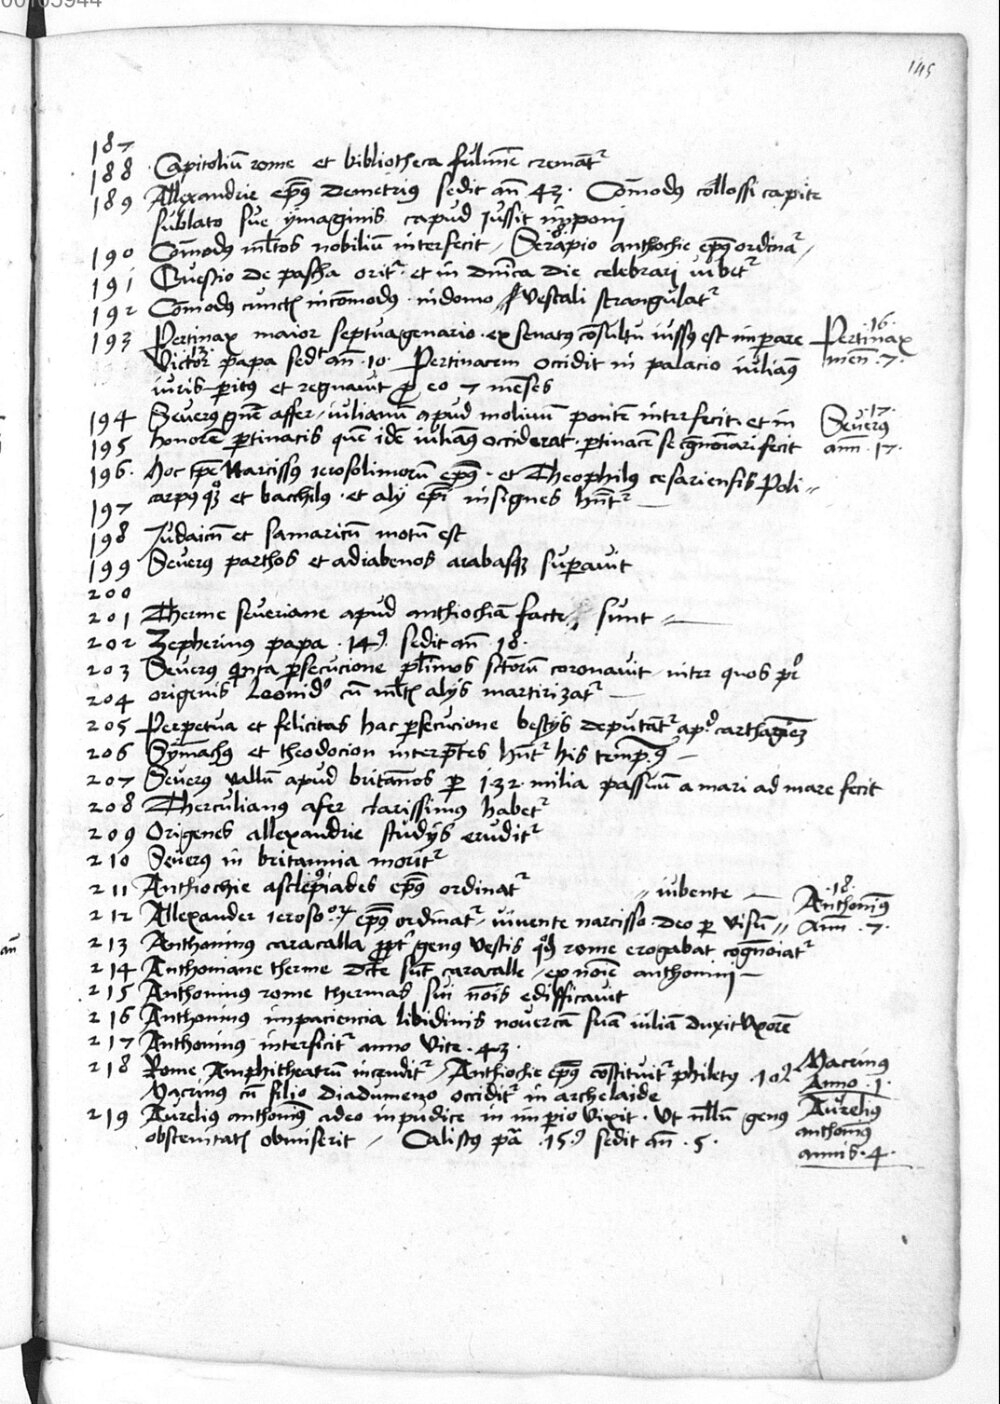 00105944
145
187
188 Capitoliū rome et bibliotheca fulmīe cremat᷑
189 Allexandrie ep̄us Demetrius sedit an̄ 43. Cōmodus collossi capite
sublato sue ymaginis capud Iussit imponi
190 Cōmodus ml̄tos nobiliū interfecit / Serapio anthochie ep̄us ordinat᷑ /
191 Questio de pascha orit᷑ et in dnīca die celebrari iubet᷑
192 Cōmodus cunctis incōmodus in domo vestali strangulat᷑
193 Pertinax maior septuagenario ex senatus cōsultu iussus est imperare
Victor papa sedt an̄ .10. Pertinacem occidit in palacio iulianus
iuris peritus et regnauit pro eo 7 menses
16.
Pertinax
men̄ .7.
194 Seuerus affer / iulianū apud moliuū pontē interfecit et in
195 honorē pertinatis quē idē iulianus occiderat pertinacē se cognoīari fecit
17.
Seuerus
ann̄ .17.
196. Hoc tp̄e Narcissus ierosolimorū ep̄us et Theophilus cesariensis Poli=
197 carpus quoque et bacchilus et alij ep̄i insignes hn̄t᷑
198 Iudaicū et samaricū motū est
199 Seuerus parthos et adiabenos arabasque superauit
200
201 Therme seueriane apud anthiochiā facte sunt
202 Zepherinus papa .14. sedit an̄ 18.
203 Seuerus quinta persecucione plīmos sctorū coronauit inter quos
204 origenis Leonidus cū ml̄tis alijs martirizat᷑
205 Perpetua et felicitas hac persecucione bestijs deputāt᷑ apud
206 Symachus et theodocion interp̄tes hn̄t᷑ his
207 Seuerus vallū apud britānos per 132 milia passuū a mari ad mare fecit
208 Therculianus afer clarissimus habet᷑
209 Origenes allexandrie studijs erudit᷑
210 Seuerus in britannia morit᷑
211 Anthiochie asclepiades ep̄us ordinat᷑ // iubente
212 Allexander ep̄us ordinat᷑ viuente narcisso deo per visū //
18.
Anthonius
Ann̄ .7.
213 Anthoninus caracalla genus vestis rome erogabat cognoīat᷑
214 Anthoniane therme dcē sūt caracalle / ex noīe anthonini
215 Anthoninus rome thermas sui nōis edifficauit
216 Anthoninus impaciencia libidinis nouercā suā iuliā duxit vxorē
217 Anthoninus interficit᷑ anno vite .43.
218 Rome Amphitheatrū incendit᷑ / Anthiochie ep̄us cōstituit᷑ philetus .10.
Macrinus cū filio Diadumeno occidit᷑ in archelaide
Macrinus
Anno .1.
219 Aurelius anthonius adeo inpudice in imperio vixit vt nl̄lū genus
obscenitatis obmiserit / Calistus pā .15. sedit an̄ .5.
Aurelius
anthonius
annis .4.